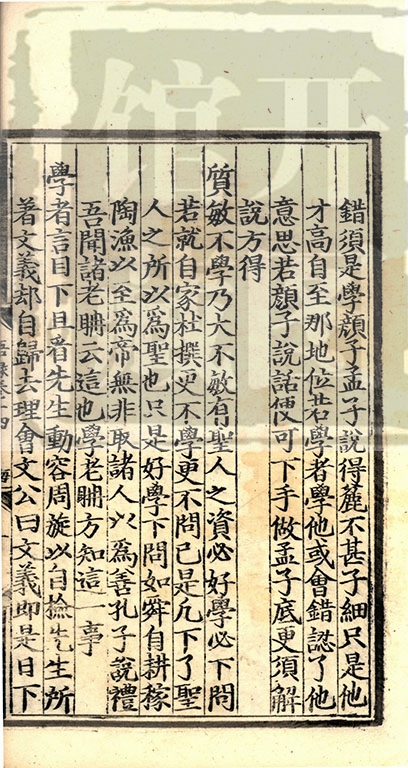 錯須是學顏子孟子說得麄不甚子細只是他
才高自至那地位若學者學他或會錯認了他
意思若顏子說話便可下手做孟子底更須解
說方得
質敏不學乃大不敏有聖人之資必好學必下問
若就自家杜撰更不學更不問已是凡下了聖
人之所以爲聖也只是好學下問如舜自耕稼
陶漁以至爲帝無非取諸人以爲善孔子說禮
吾聞諸老聃云這也學老聃方知這一事
學者言目下且看先生動容周旋以自檢先生所
著文義却自歸去理會文公曰文義即是目下